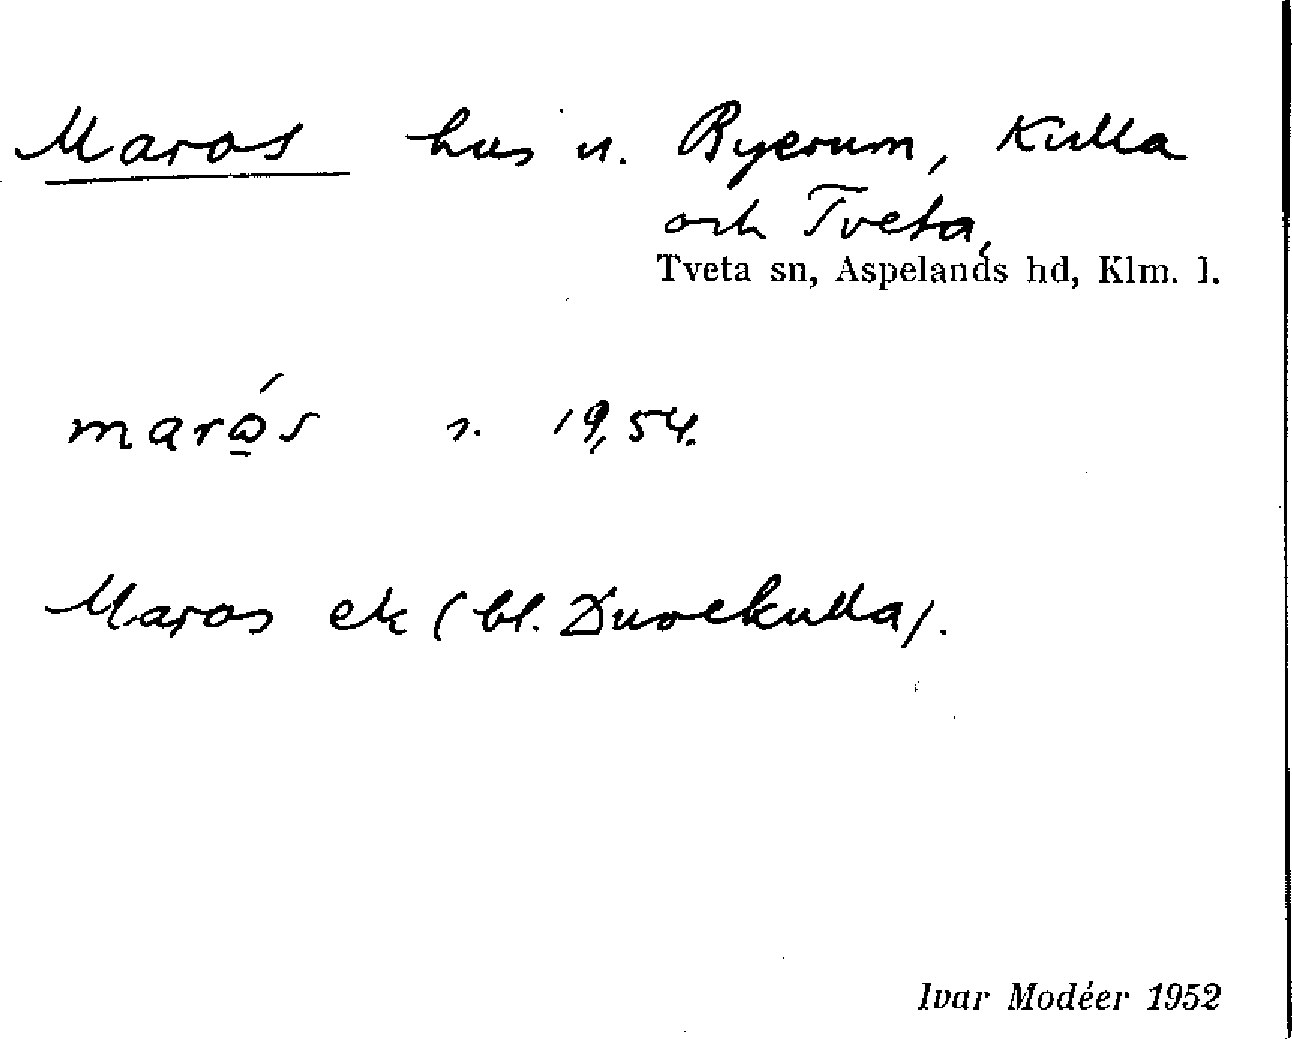 Maros hus u. Byerum, Kulla
och Tveta,
Tveta sn, Aspelands hd, Klm. l.
marώ̲s s. 19, 54.
Maros ek (bl. Duvekulla).
Ivar Modéer 1952